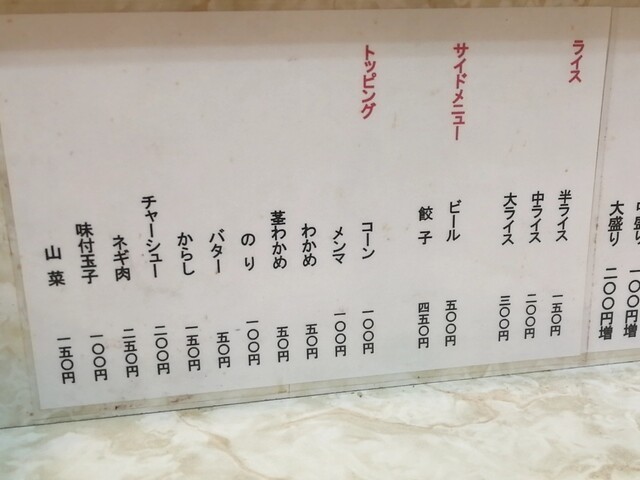 中盛り 一〇〇円増
大盛り 二〇〇円増
ライス
半ライス 一五〇円
中ライス 二〇〇円
大ライス 三〇〇円
サイドメニュー
ビール 五〇〇円
餃子 四五〇円
トッピング
コーン 一〇〇円
メンマ 一〇〇円
わかめ 五〇円
茎わかめ 五〇円
のり 一〇〇円
バター 五〇円
からし 一五〇円
チャーシュー 二〇〇円
ネギ肉 二五〇円
味付玉子 一〇〇円
山菜 一五〇円